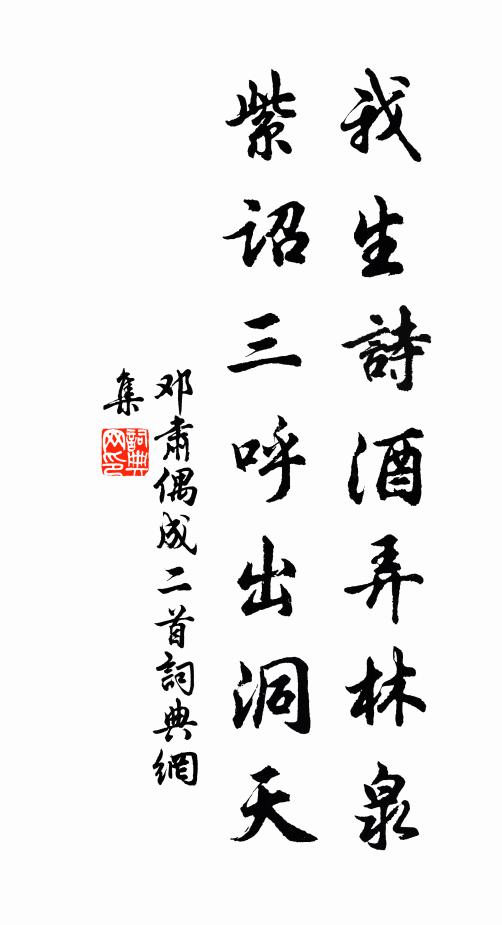 我生詩酒弄林泉
紫詔三呼出洞天
邓肅偶成二首詞典網
集
詞典
网印